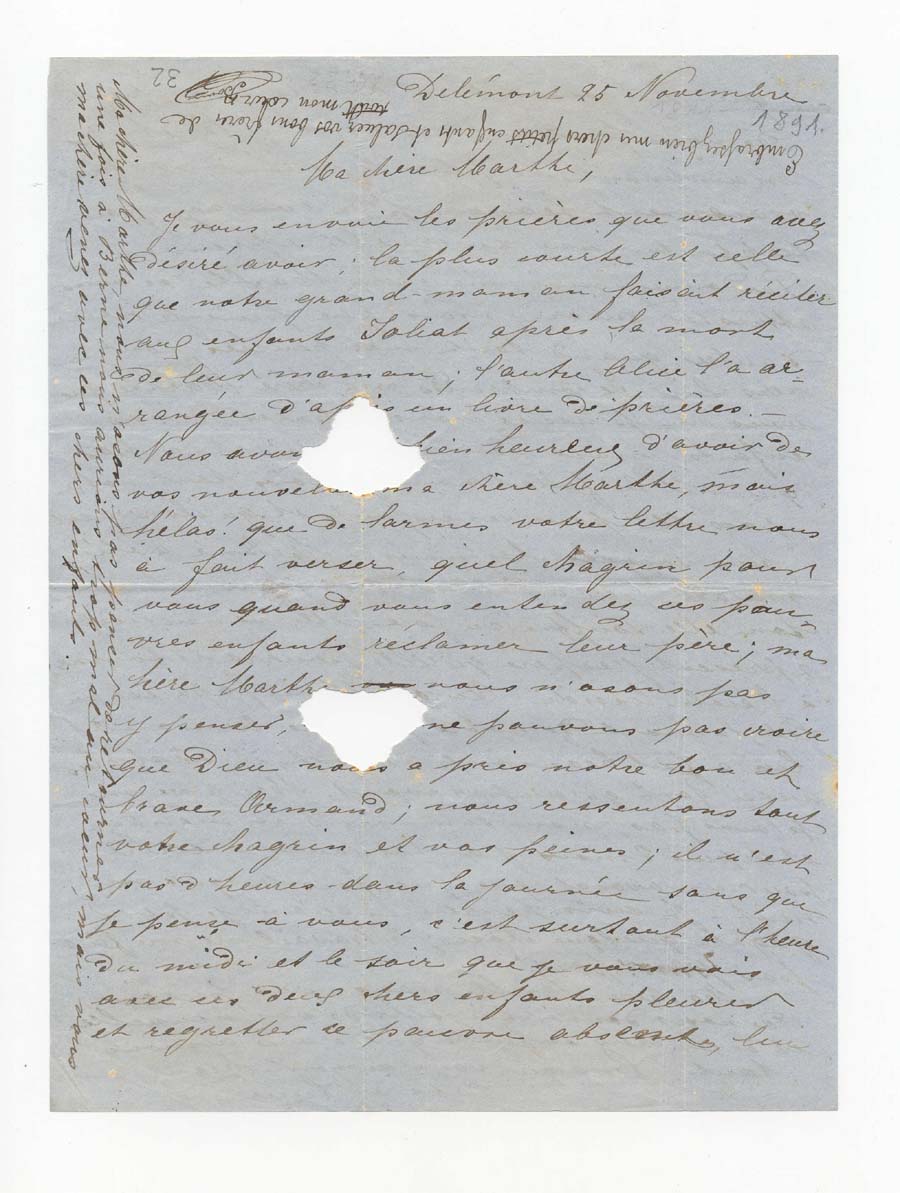 Delémont 25 Novembre
1891.
Ma chère Marthe,
Je vous envoie les prières que vous avez
désiré avoir; la plus courte est celle
que votre grand-maman faisait réciter
aux enfants Joliat après la mort
de leur maman; l'autre Alice l'a ar-
rangée d'après un livre de prières.—
Nous avon bien heureux d'avoir de
vos nouvel ma chère Marthe, mais
hélas! que de larmes votre lettre nous
à fait verser, quel chagrin pour
vous quand vous entendez ces pau-
vres enfants réclamer leur père; ma
chère Marth nous n'osons pas
y penser, ne pouvons pas croire
que Dieu nous a pris notre bon et
brave Armand; nous ressentons tout
votre chagrin et vos peines; il n'est
pas d'heures dans la journée sans que
je pense à vous, c'est surtout à l'heure
du midi et le soir que je vous vois
avec ces deux chers enfants pleurer
et regretter ce pauvre absent, lui
Ma chère Marthe, nous n'osons pas penser de retourner
une fois à Berne nous aurions trop mal au coeur, mais vous
ma chère venez avec ces chers enfants.
Embrassez bien mes chers petits enfants et saluez vos bons frères de
tout mon coeur
32